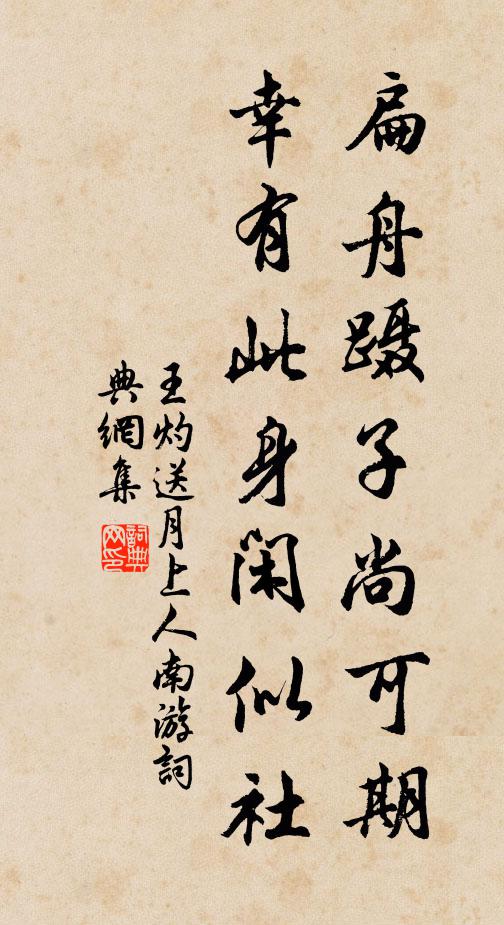 扁舟蹑子尚可期
幸有此身闲似社
王灼送月上人南游詞
典網集
詞典網印